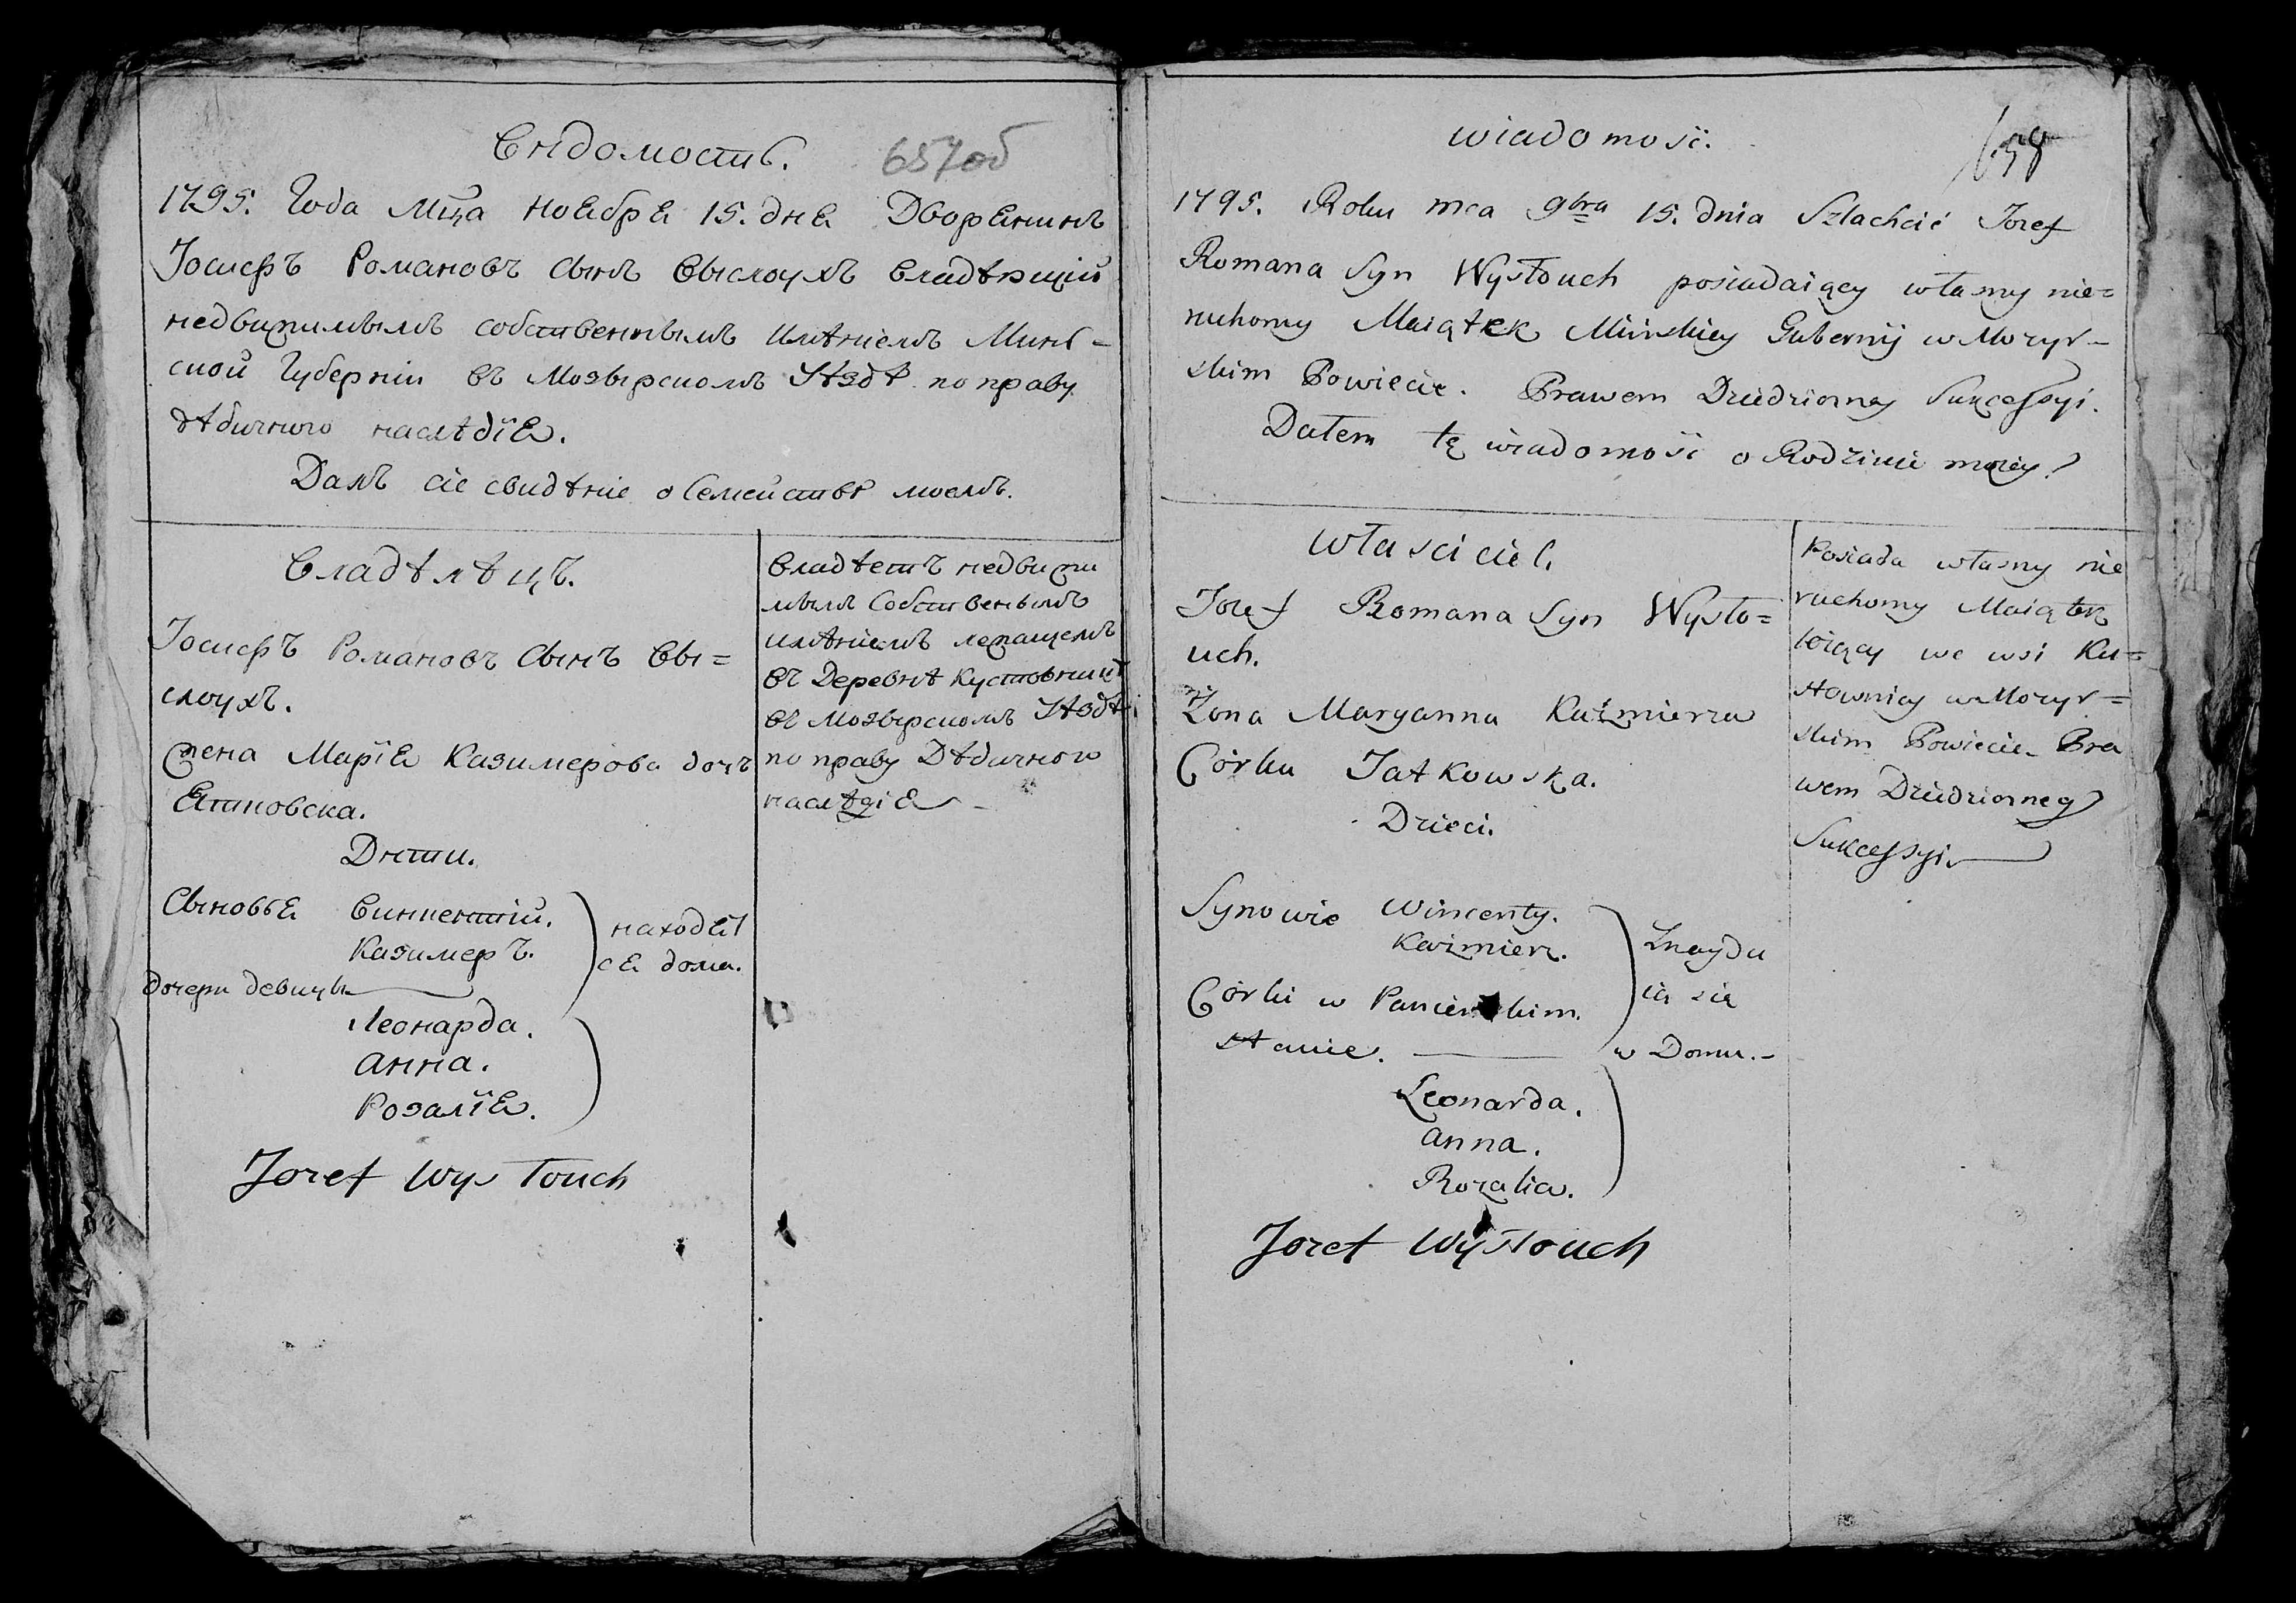 Вѣдомость. 657об
1795. Года Мца Ноября 15. дня Дворянинъ
Іосифъ Романовъ Сынъ Выслоухъ владѣющій
недвижимымъ собственнымъ имѣніемъ Минъ-
ской Губерніи въ Мозырскомъ Уѣздѣ по праву
дѣдичного наслѣдїя.
Далъ сіе свидѣніе о Семействѣ моемъ.
Владѣлѣцъ.
Іосифъ Романовъ Сынъ Вы=
слоухъ.
Жена Марїя Казимерова дочъ
Ятковска.
Дѣти.
Сыновья Винцентій.
Казимеръ.
находят
ся дома.
дочери девицы
Леонарда.
Анна.
Розалїя.
Jozef Wysłouch
Владѣетъ недвижи
мымъ Собственымъ
имѣніемъ лежащемъ
въ Деревнѣ Кустовницѣ
въ Мозырскомъ Уѣздѣ
по праву Дѣдичного
наслѣдія
wiadomość. 658
1795. Roku mca 9bra 15. dnia Szlachcić Jozef
Romana Syn Wysłouch posiadaiący własny nie=
ruchomy Maiątek Minskiey Gubernij w Mozyr-
skim Powiecie. Prawem Dziedziczney Sukcessyi.
Dałem tę wiadomość o Rodzinie moiey
Własciciel.
Jozef Romana Syn Wysło=
uch.
Żona Maryanna Kaźmierza
Córka Jatkowska.
Dzieci.
Synowie Wincenty.
Kaźmierz.
Córki w Panieńskim.
stanie.
Znaydu
ią się
w Domu.-
Leonarda.
Anna.
Rozalia.
Jozef Wysłouch
Posiada własny nie
ruchomy Maiątek
leżący we wsi Ku=
stownicy w Mozyr=
skim Powiecie. Pra
wem Dziedziczney
Sukcessyi.